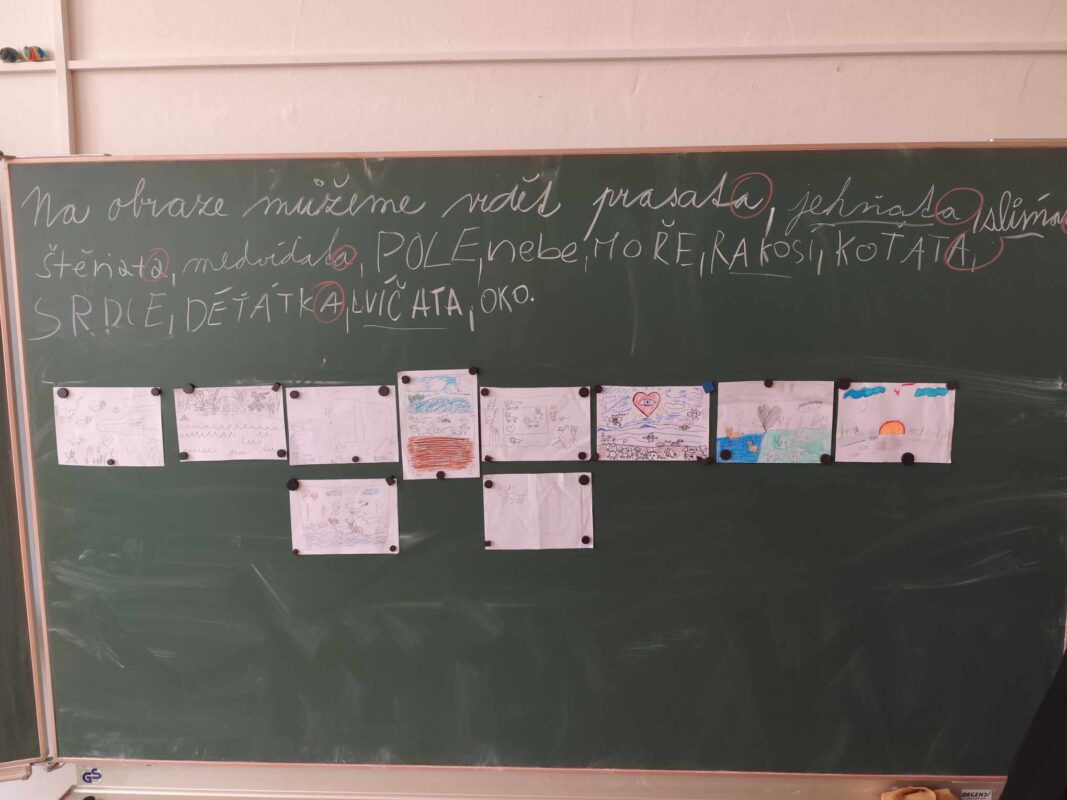 Na obraze můžeme vidět prasata, jehňata,
štěňata, medvíďata, POLE, nebe, MOŘE, RAKOSÍ, KOŤATA,
SRDCE, DĚŤÁTKA, LVÍČATA, OKO.
GS